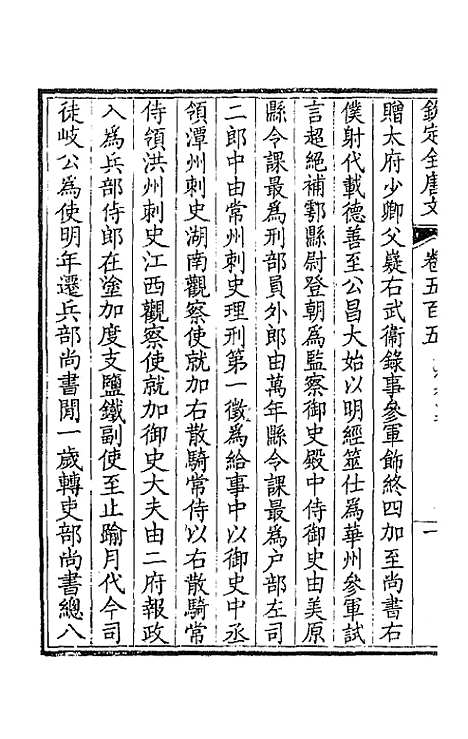 欽定全唐文 卷五百五
贈太府少卿父嶷右武衞錄事參軍飾終四加至尚書右
僕射代載德善至公昌大始以明經筮仕為華州參軍試
言超絕補鄠縣尉登朝為監察御史殿中侍御史由美原
縣令課最為刑部員外郎由萬年縣令課最為户部左司
二郎中由常州刺史理刑第一徵為給事中以御史中丞
領潭州刺史湖南觀察使就加右散騎常侍以右散騎常
侍領洪州刺史江西觀察使就加御史大夫由二府報政
入為兵部侍郎在塗加度支鹽鐵副使至止踰月代今司
徒岐公為使明年遷兵部尚書閒一歲轉吏部尚書總八